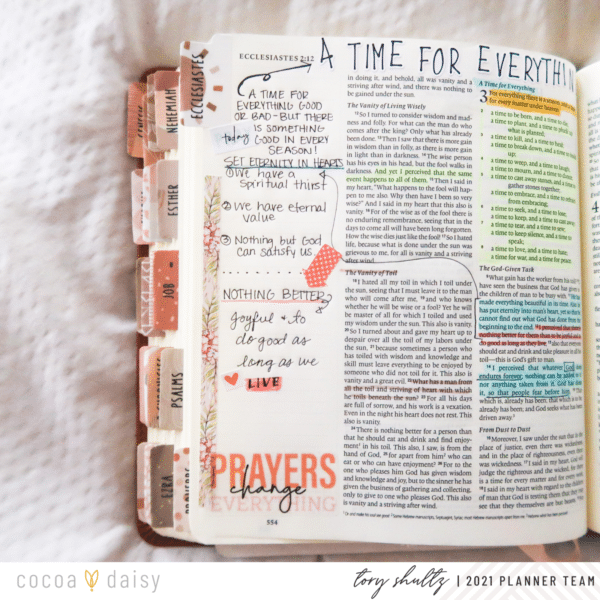 ECCLESIASTES 2:12
A TIME FOR EVERYTHIN
A TIME FOR
EVERYTHING GOOD
OR BAD - BUT THERE
IS SOMETHING
today GOOD IN EVERY
SEASON!
SET ETERNITY IN HEARTS
① We have a
Spiritual thirst
② We have eternal
value
③ Nothing but God
can satisfy us
NOTHING BETTER
joyful + to
do good as
long as we
LIVE
PRAYERS
change
EVERYTHING
554
ECCLESIASTES
NEHEMIAH
ESTHER
JOB
PSALMS
EZRA
PROVERBS
in doing it, and behold, all was vanity and a
striving after wind, and there was nothing to
be gained under the sun.
The Vanity of Living Wisely
12 So I turned to consider wisdom and mad-
ness and folly. For what can the man do who
comes after the king? Only what has already
been done. 13 Then I saw that there is more gain
in wisdom than in folly, as there is more gain
in light than in darkness. 14 The wise person
has his eyes in his head, but the fool walks in
darkness. And yet I perceived that the same
event happens to all of them. 15 Then I said in
my heart, "What happens to the fool will hap-
pen to me also. Why then have I been so very
wise?" And I said in my heart that this also is
vanity. 16 For of the wise as of the fool there is
no enduring remembrance, seeing that in the
days to come all will have been long forgotten.
How the wise dies just like the fool! 17 So I hated
life, because what is done under the sun was
grievous to me, for all is vanity and a striving
after wind.
The Vanity of Toil
18 I hated all my toil in which I toil under
the sun, seeing that I must leave it to the man
who will come after me, 19 and who knows
whether he will be wise or a fool? Yet he will be
master of all for which I toiled and used
my wisdom under the sun. This also is vanity.
20 So I turned about and gave my heart up to
despair over all the toil of my labors under
the sun, 21 because sometimes a person who
has toiled with wisdom and knowledge and
skill must leave everything to be enjoyed by
someone who did not toil for it. This also is
vanity and a great evil. 22 What has a man from
all the toil and striving of heart with which
he toils beneath the sun? 23 For all his days
are full of sorrow, and his work is a vexation.
Even in the night his heart does not rest. This
also is vanity.
24 There is nothing better for a person than
that he should eat and drink and find enjoy-
ment in his toil. This also, I saw, is from the
hand of God, 25 for apart from him who can
eat or who can have enjoyment? 26 For to the
one who pleases him God has given wisdom
and knowledge and joy, but to the sinner he has
given the business of gathering and collecting,
only to give to one who pleases God. This also
is vanity and a striving after wind.
A Time for Everything
3 For everything there is a season, and a time
for every matter under heaven:
2 a time to be born, and a time to die;
a time to plant, and a time to pluck up
what is planted;
3 a time to kill, and a time to heal;
a time to break down, and a time to build
up;
4 a time to weep, and a time to laugh;
a time to mourn, and a time to dance;
5 a time to cast away stones, and a time to
gather stones together;
a time to embrace, and a time to refrain
from embracing;
6 a time to seek, and a time to lose;
a time to keep, and a time to cast away;
7 a time to tear, and a time to sew;
a time to keep silence, and a time to
speak;
8 a time to love, and a time to hate;
a time for war, and a time for peace.
The God-Given Task
9 What gain has the worker from his toil? 10 I
have seen the business that God has given to
the children of man to be busy with. 11 He has
made everything beautiful in its time. Also, he
has put eternity into man's heart, yet so that he
cannot find out what God has done from the
beginning to the end. 12 I perceived that there is
nothing better for them than to be joyful and to
do good as long as they live; 13 also that everyone
should eat and drink and take pleasure in all his
toil—this is God's gift to man.
14 I perceived that whatever God does
endures forever; nothing can be added to it,
nor anything taken from it. God has done
it, so that people fear before him. 15 That
which is, already has been; that which is to be,
already has been; and God seeks what has been
driven away.
From Dust to Dust
16 Moreover, I saw under the sun that in the
place of justice, even there was wickedness,
and in the place of righteousness, even there
was wickedness. 17 I said in my heart, God will
judge the righteous and the wicked, for there
is a time for every matter and for every work.
18 I said in my heart with regard to the children
of man that God is testing them that they may
see that they themselves are but beasts.
cocoa daisy
tory shultz | 2021 PLANNER TEAM